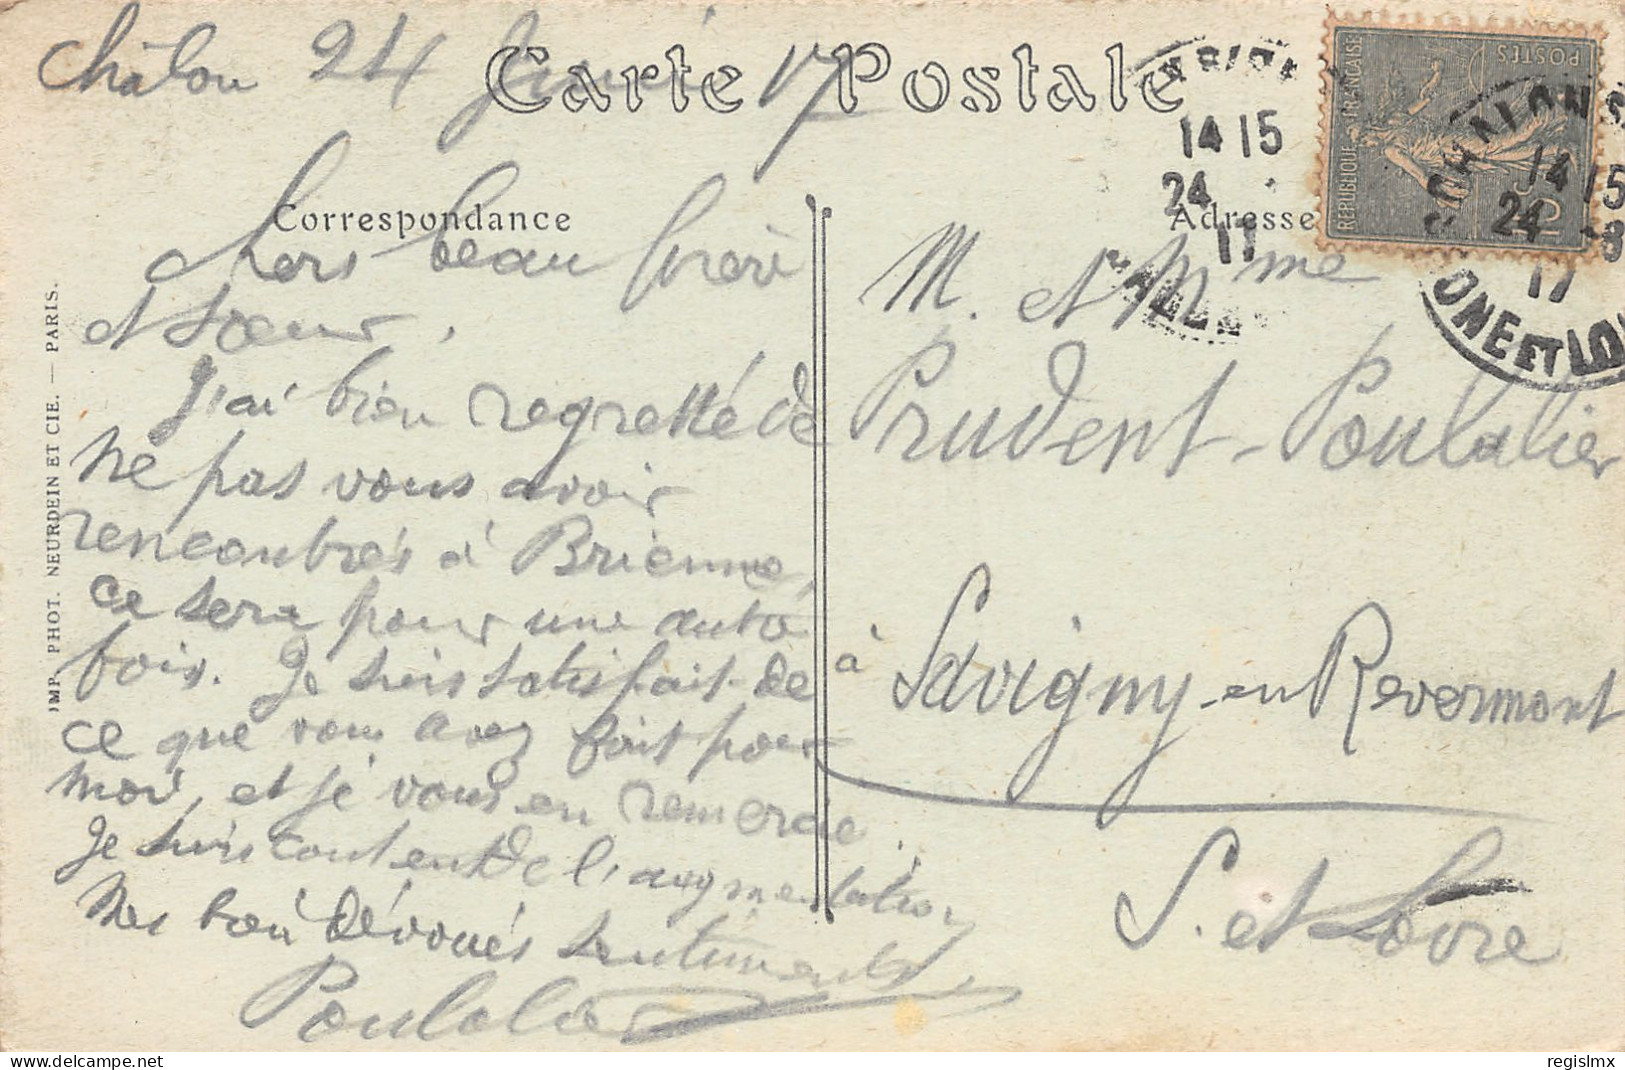 Châlon 24 17
Carte Postale
Correspondance
Adresse
chers beau frère
et soeur,
J'ai bien regretté de
ne pas vous avoir
rencontrés à Brienne,
ce sera pour une autre
fois. Je suis satisfait de
ce que vous avez fait pour
moi, et je vous en remercie.
Je suis content de l'augmentation
Mes bien dévoués sentiments,
Poulalier
M. et Mme
Prudent-Poulalier
à Savigny-en Revermont
S. et Loire
IMP. PHOT. NEURDEIN ET CIE. — PARIS.
REPUBLIQUE FRANÇAISE
POSTES
15c
14 15
24
17
CHALON S
14 15
24 -8
17
ONE ET LOI
regislmx
www.delcampe.net